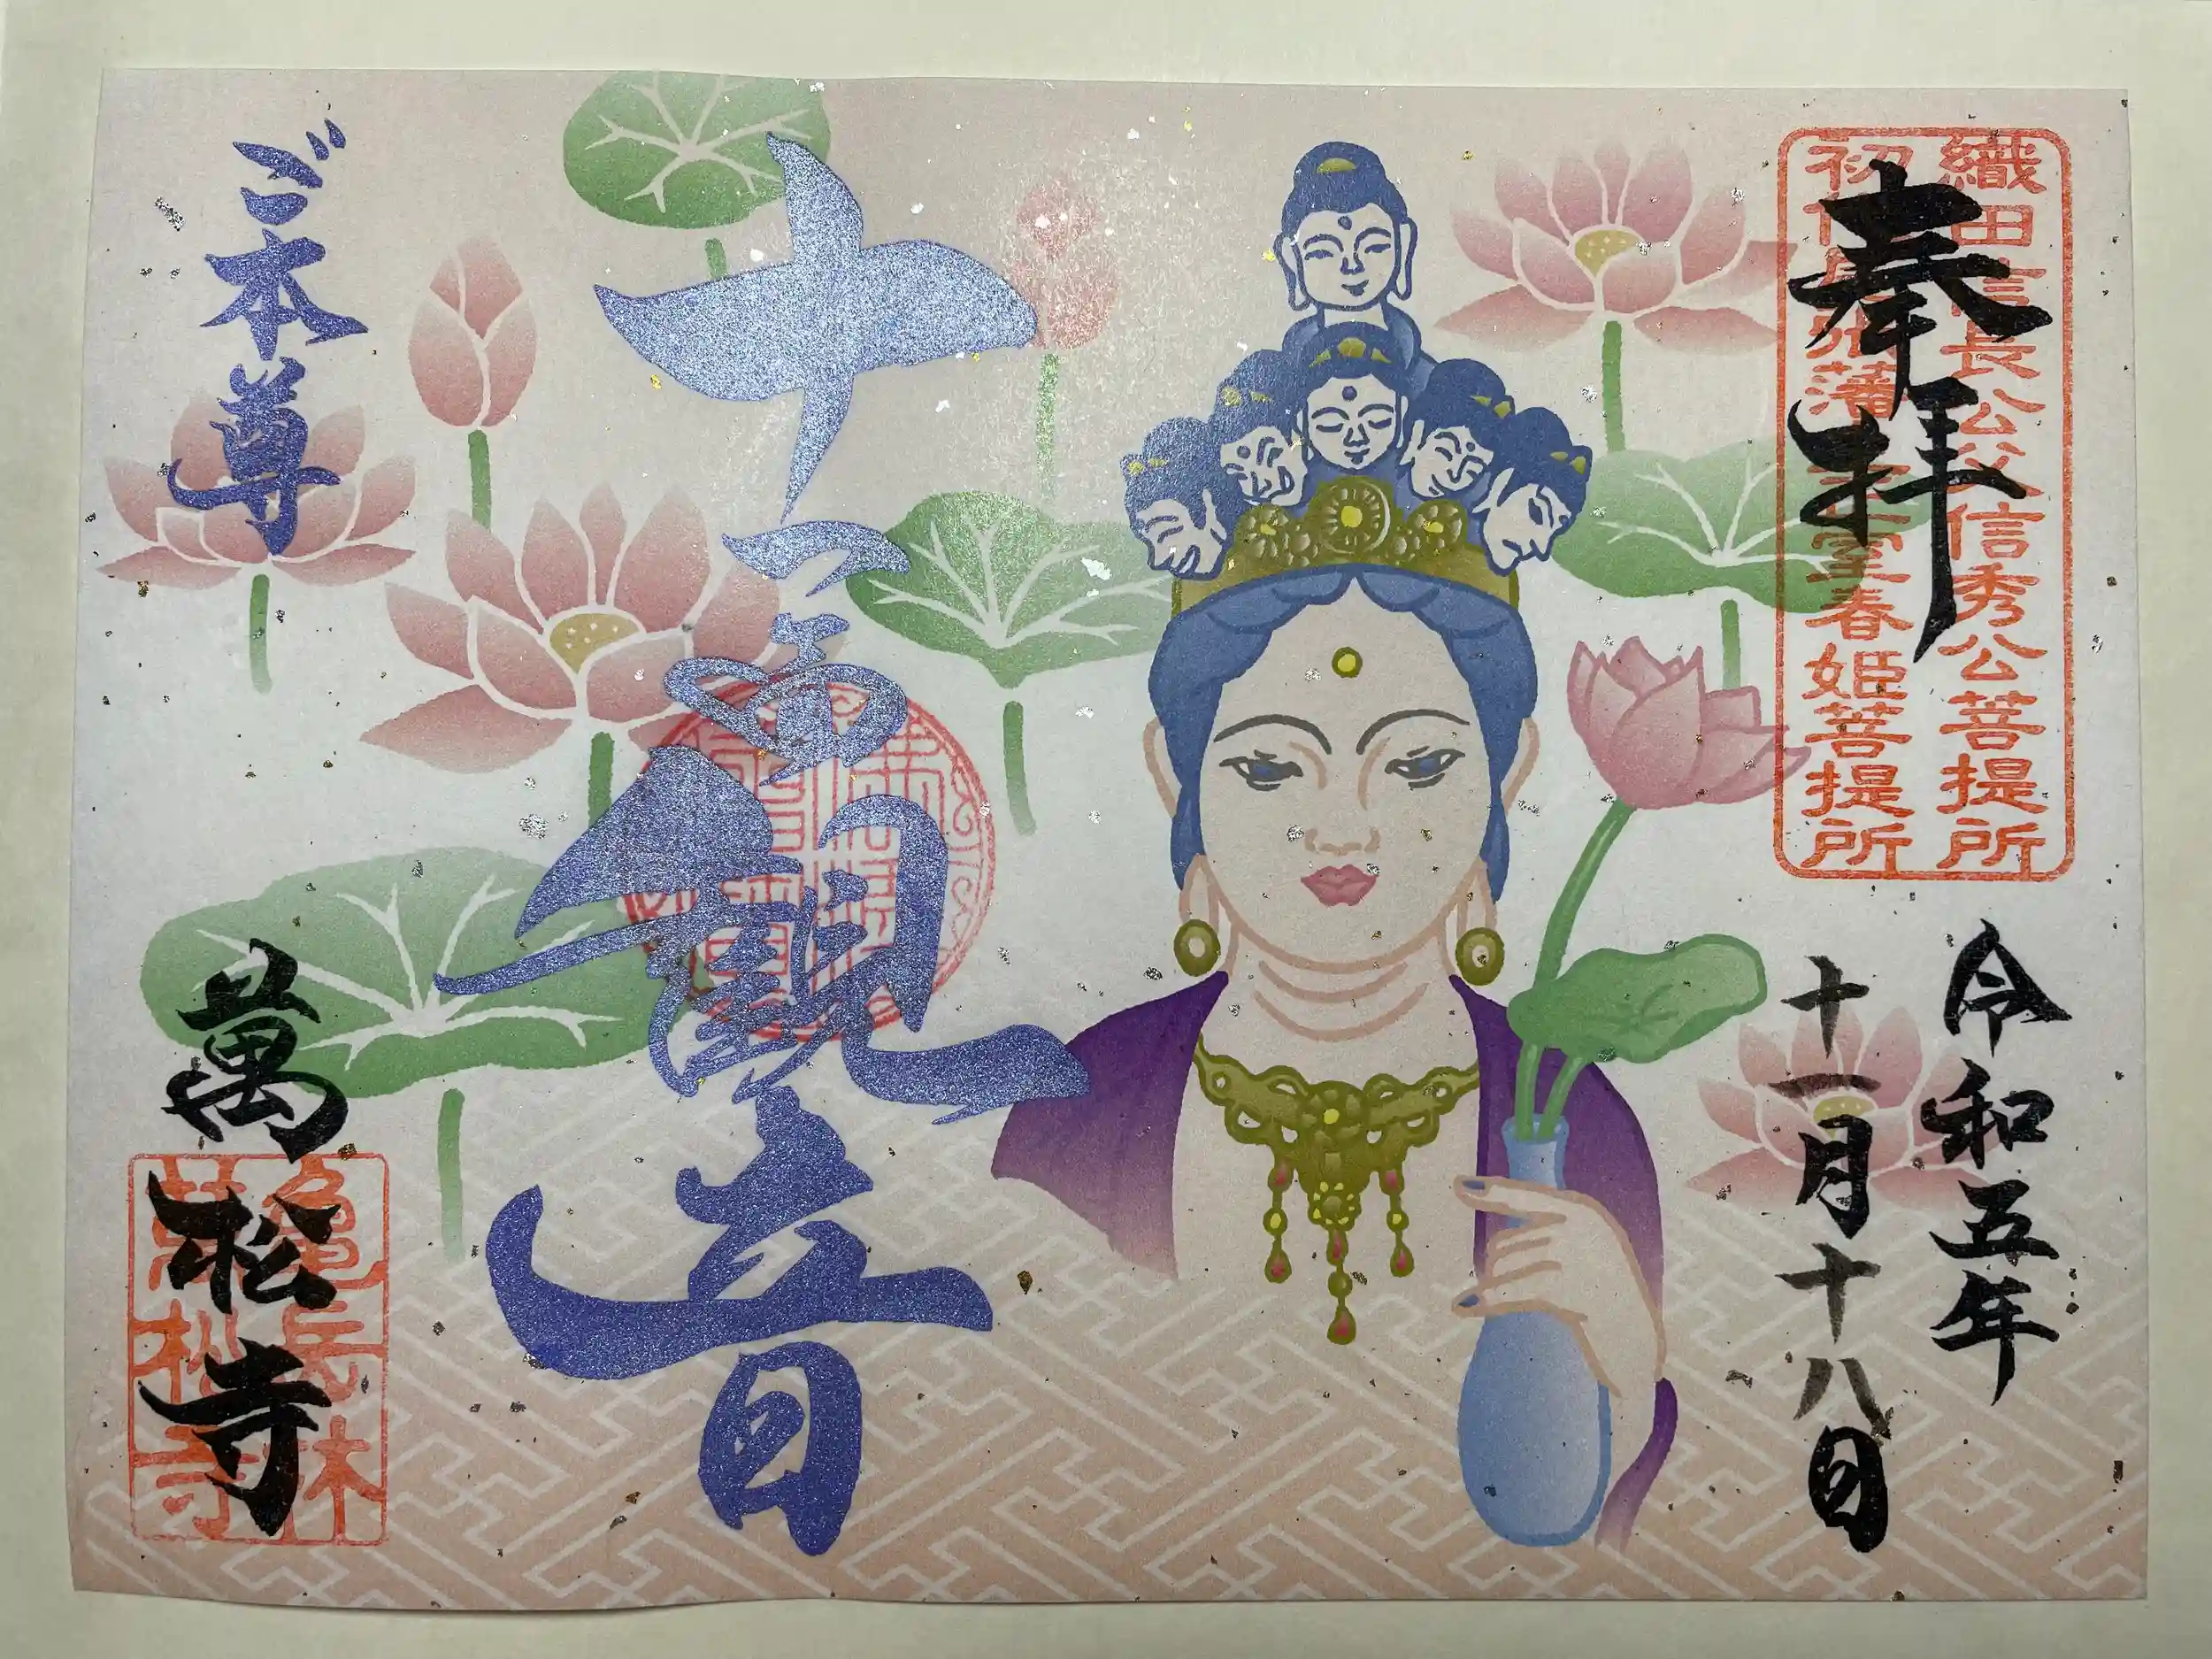 奉拝
織田信長公父信秀公菩提所
初代尾張藩主正室春姫菩提所
令和五年
十一月十八日
十一面観音
ご本尊
萬松寺
亀岳林
萬松寺